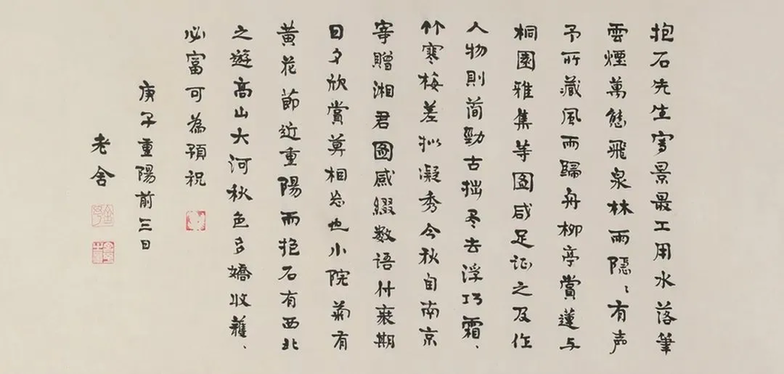 抱石先生写景最工用水落筆
雲煙萬態飛泉林雨隱、有声
予所藏風雨歸舟柳亭賞蓮与
桐園雅集等图咸足证之及作
人物則简勁古拙尽去浮巧霜、
竹寒梅差拟凝秀今秋自南京
寄贈湘君圖感綴数语付裱期
日夕欣賞莫相忘也小院菊有
黃花節近重陽而抱石有西北
之遊高山大河秋色多嬌收穫、
必富可為預祝
庚子重陽前三日
老舍